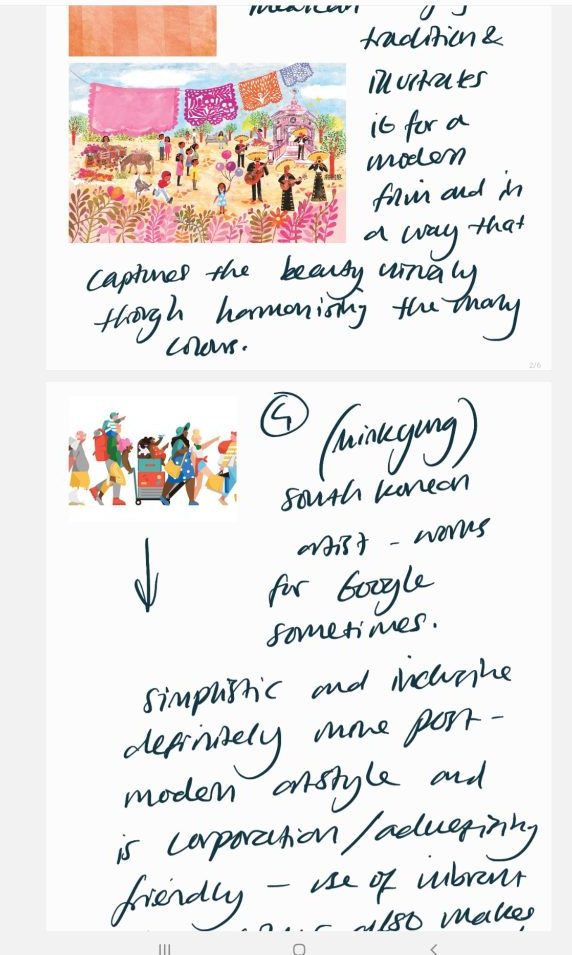 tradition &
illustrates
it for a
modern
film and in
a way that
captures the beauty
though harmonising the many
colours.
2/6
4 (minkyung)
South Korean
artist - works
for Google
sometimes.
simplistic and inclusive
definitely more post-
modern artstyle and
is corporation/advertizing
friendly - use of vibrant
also makes